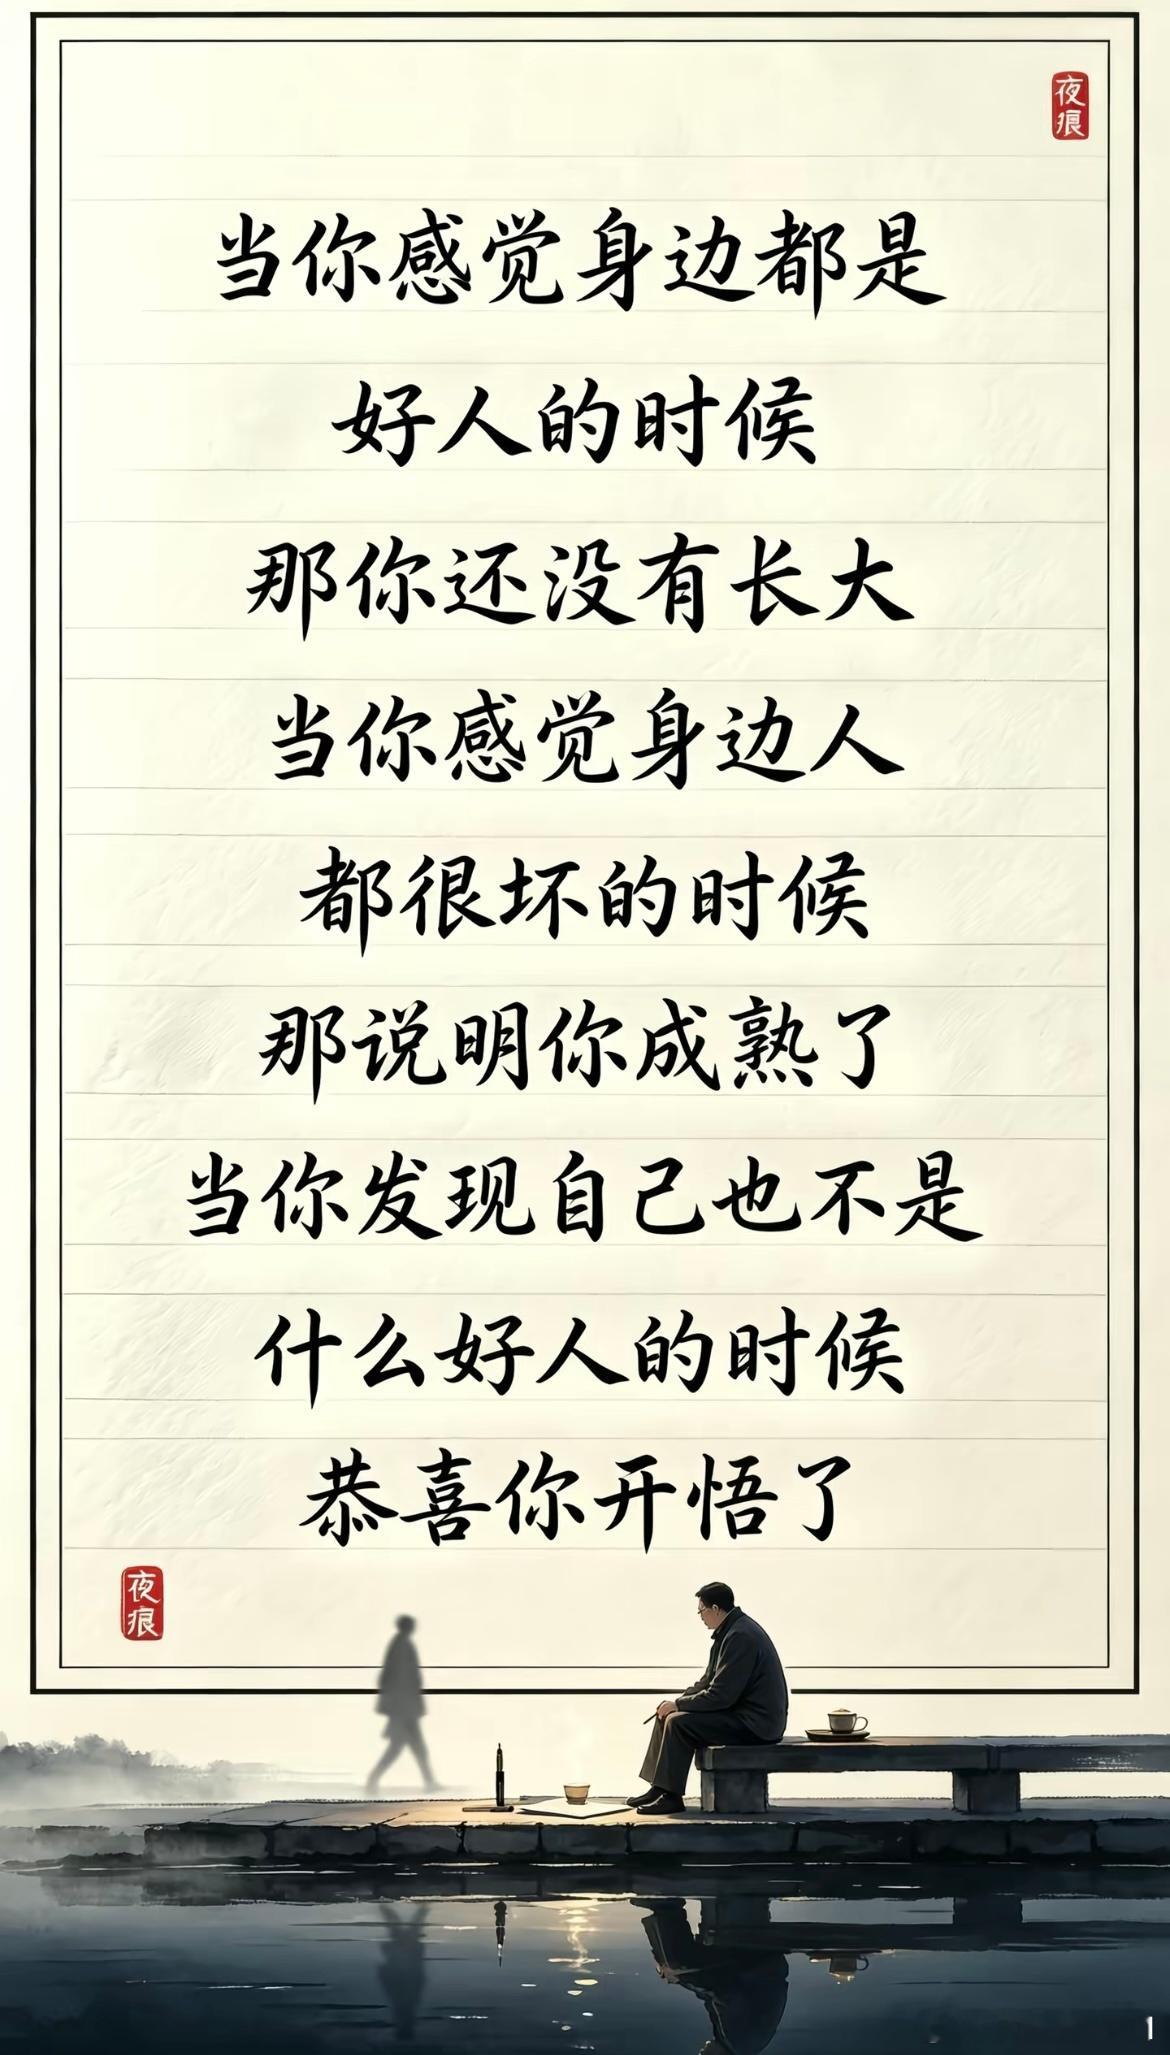 夜痕
当你感觉身边都是
好人的时候
那你还没有长大
当你感觉身边人
都很坏的时候
那说明你成熟了
当你发现自己也不是
什么好人的时候
恭喜你开悟了
夜痕
1